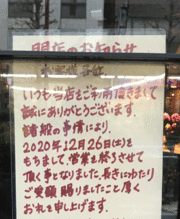 閉店のお知らせ
いつも当店をご利用頂きまして
誠にありがとうございます。
諸般の事情により、
2020年12月26日(土)を
もちまして、営業を終うさせて
頂く事となりました。長きにわたり
ご愛顧賜りましたこと厚く
お礼を申し上げます。